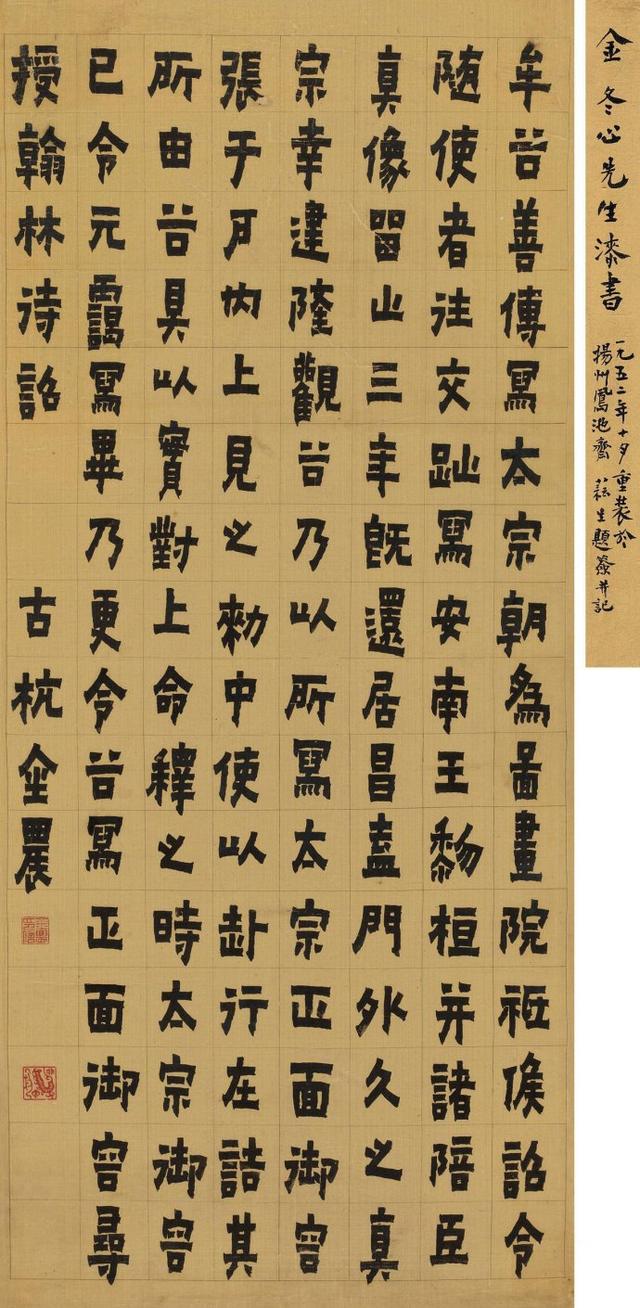 金冬心先生漆書
一九五二年十月重裝於
揚州鳳池齋 生題簽并記
牟谷善傳寫太宗朝為圖畫院祗候詔令
随使者往交趾寫安南王黎桓并諸陪臣
真像畱止三年既還居昌盍門外久之真
宗幸建隆觀谷乃以所寫太宗正面御容
張于戶内上見之勑中使以赴行在詰其
所由谷具以實對上命釋之時太宗御容
已令元靄寫畢乃更令谷寫正面御容尋
授翰林待詔 古杭金農